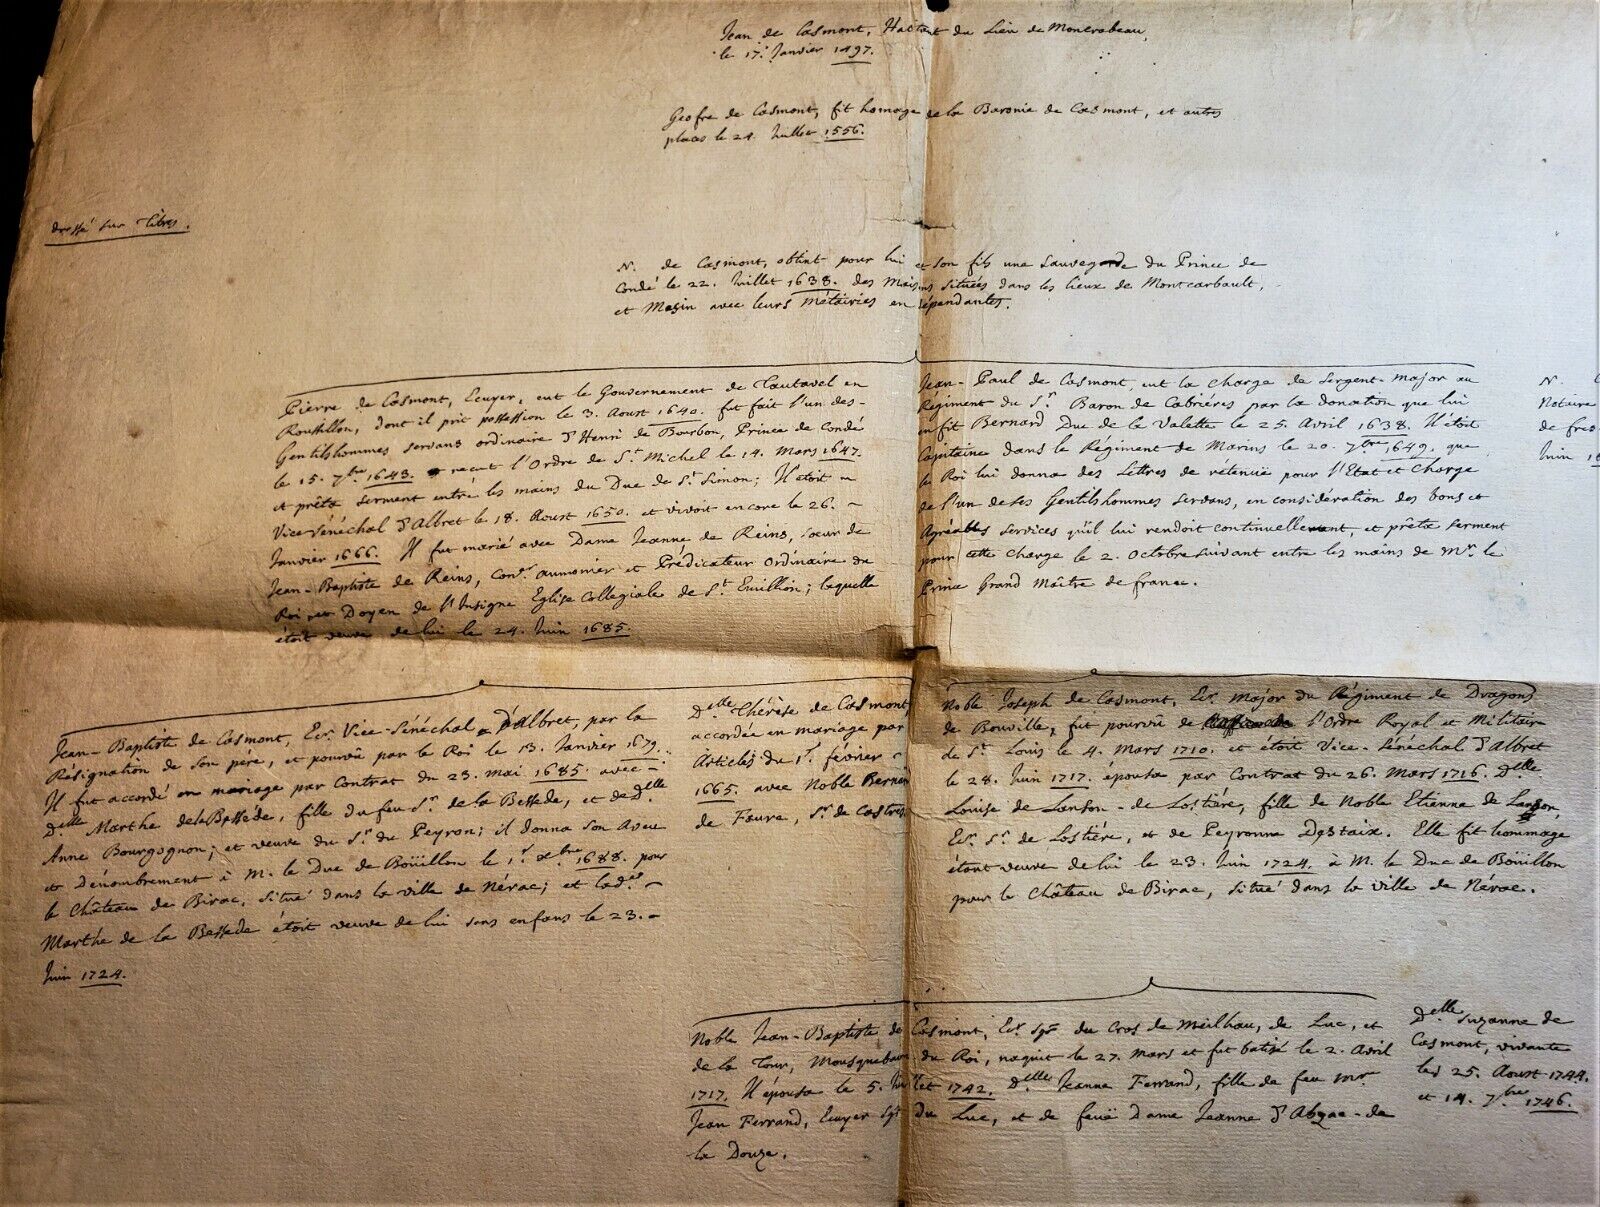 Jean de Casmont, Habitant du Lieu de Moncrabeau,
le 17. Janvier 1497.
Geofre de Casmont, fit homage de la Baronie de Casmont, et autres
places le 24. Juillet 1556.
dressé sur Titres.
N. de Casmont, obtint pour lui et son fils une Sauvegarde du Prince de
Condé le 22. Juillet 1638. des Maisons situées dans les lieux de Montcarbault,
et Mezin avec leurs Métairies en dépendantes.
Pierre de Casmont, Ecuyer, eut le Gouvernement de Tautavel en
Roussillon, dont il prit possession le 3. Aoust 1640. fut fait l'un des
Gentilshommes servans ordinaire d'Henri de Bourbon, Prince de Condé
le 15. 7.bre 1643. reçut l'Ordre de S.t Michel le 14. Mars 1647.
et prêta serment entre les mains du Duc de S.t Simon; Il étoit
Vice-Sénéchal d'Albret le 18. Aoust 1650. et vivoit encore le 26.
Janvier 1666. Il fut marié avec Dame Jeanne de Reins, soeur de
Jean-Baptiste de Reins, Con.er aumonier et Prédicateur Ordinaire du
Roi, et Doyen de l'Insigne Eglise Collegiale de S.t Emillion; laquelle
étoit veuve de lui le 24. Juin 1685.
Jean-Paul de Casmont, eut la charge de Sergent-Major au
Régiment du S.r Baron de Cabriéres par la donation que lui
en fit Bernard Duc de la Valette le 25. Avril 1638. Il étoit
Capitaine dans le Régiment de Marins le 20. 7.bre 1649, que
le Roi lui donna des Lettres de retenue pour l'Etat et Charge
de l'un de ses Gentilshommes servans, en considération des bons et
Agréables services qu'il lui rendoit continuellement, et prêta serment
pour cette charge le 2. Octobre suivant entre les mains de M.r le
Prince Grand Maître de france.
N.
Notaire
de
Juin
Jean-Baptiste de Casmont, Ec.r Vice-Sénéchal d'Albret, par la
Résignation de son père, et pourvû par le Roi le 13. Janvier 1679.
Il fut accordé en mariage par Contrat du 23. Mai 1685. avec
D.elle Marthe de la Bessède, fille du feu S.r de la Bessede, et de D.elle
Anne Bourgognon; et veuve du S.r du Peyron; il donna son Aveu
et Dénombrement à M. le Duc de Boüillon le 1.r x.bre 1688. pour
le Château de Birac, situé dans la ville de Nérac; et lad.e
Marthe de la Bessede étoit veuve de lui sans enfans le 23.
Juin 1724.
D.elle Thérèse de Casmont
accordée en mariage par
Articles du 1.r février
1665. avec Noble Bernard
de Faure, S.r de Castres
Noble Joseph de Casmont, Ec.r Major du Régiment de Dragons
de Bouville, fut pourvû de l'Ordre Royal et Militaire
de S.t Louis le 4. Mars 1710. et étoit Vice-Sénéchal d'Albret
le 28. Juin 1717. épousa par Contrat du 26. Mars 1716. D.elle
Louise de Lanson de Lostière, fille de Noble Etienne de Lanson,
Ec.r S.r de Lostière, et de Peyronne Destaix. Elle fit hommage
étant veuve de lui le 23. Juin 1724. à M. le Duc de Boüillon
pour le Château de Birac, situé dans la ville de Nérac.
Noble Jean-Baptiste de Casmont, Ec.r Sg.r du Cros de Meilhau, de Luc, et
de la Tour, Mousquetaire du Roi, naquit le 27. Mars et fut batisé le 2. Avril
1717. Il épousa le 5. Juillet 1742. D.elle Jeanne Ferrand, fille de feu M.r
Jean Ferrand, Ecuyer Sg.r du Luc, et de feuë Dame Jeanne d'Abzac de
la Douze.
D.elle Suzanne de
Casmont, vivante
les 25. Aoust 1744.
et 14. 7.bre 1746.